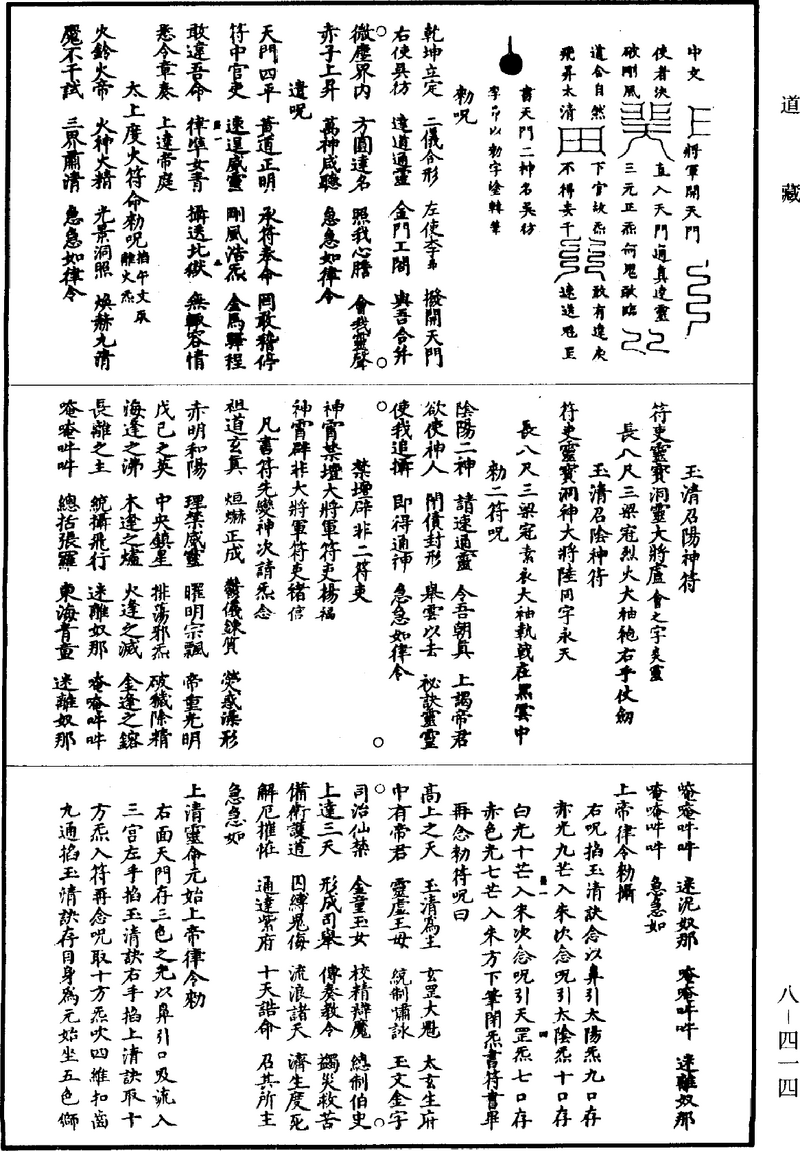 道藏
中文 將軍開天門
使者決 直入天門通真達靈
破剛風 三元正炁何鬼敢臨
道合自然 下官故炁 敢有違戾
飛昇太清 不得妄干 速送魁罡
書天門二神名吳彷
李昂以勑字塗轉筆
勑呪
乾坤立定 二儀合形 左使李昂 撥開天門
右使吳彷 遠道通靈 金門工閤 與吾合幷
微塵界內 方圓達名 照我心膽 會我靈聲
赤子上昇 萬神咸聽 急急如律令
遣呪
天門四平 黃道正明 承符奉命 罔敢稽停
符中官吏 速逞威靈 剛風浩炁 金馬驛程
敢違吾命 律準女青 攝送北獄 無輒容情
悉令章奏 上達帝庭
太上度火符命勑呪掐午文取離火炁
火鈴火帝 火神火精 光景洞照 煥赫九清
魔不干試 三界肅清 急急如律令
玉清召陽神符
符吏靈寶洞靈大將盧會之字炎靈
長八尺三梁冠烈火大袖袍右手仗劒
玉清召陰神符
符吏靈寶洞神大將陸同字永天
長八尺三梁冠素衣大袖執戟在黑雲中
勑二符呪
陰陽二神 請速通靈 令吾朝真 上謁帝君
欲使神人 開債封形 舉雲以去 祕訣靈靈
使我追攝 即得通神 急急如律令
禁壇辟非二符吏
神霄禁壇大將軍符吏楊福
神霄辟非大將軍符吏褚信
凡書符先變神次請炁念
祖道玄真 烜爀正成 欝儀鍊質 熒惑藻形
赤明和陽 理禁威靈 曜明宗飄 帝重光明
戊己之英 中央鎮星 排蕩邪炁 破穢除精
海逢之沸 木逢之爐 火逢之滅 金逢之鎔
長離之主 統攝飛行 迷離奴那 唵唵吽吽
唵唵吽吽 總括張羅 東海青童 迷離奴那
唵唵吽吽 迷泥奴那 唵唵吽吽 迷離奴那
唵唵吽吽 急急如
上帝律令勑攝
右呪掐玉清訣念以鼻引太陽炁九口存
赤光九芒入朱次念呪引太陰炁十口存
白光十芒入朱次念呪引天罡炁七口存
赤色光七芒入朱方下筆閉炁書符書畢
再念勑符呪曰
高上之天 玉清為主 玄罡大魁 太玄生府
中有帝君 靈虛王母 統制嘯詠 玉文金字
司治仙禁 金童玉女 校精辯魔 總制伯史
上達三天 形成司舉 傳奏敎令 蠲災救苦
備衛護道 囚縛鬼侮 流浪諸天 濟生度死
解厄摧怪 通達紫府 十天誥命 召其所主
急急如
上清靈命元始上帝律令勑
右面天門存三色之光以鼻引口吸流入
三宫左手掐玉清訣右手掐上清訣取十
方炁入符再念呪取十方炁吹四維扣齒
九通掐玉清訣存目身為元始坐五色獅
八-四一四